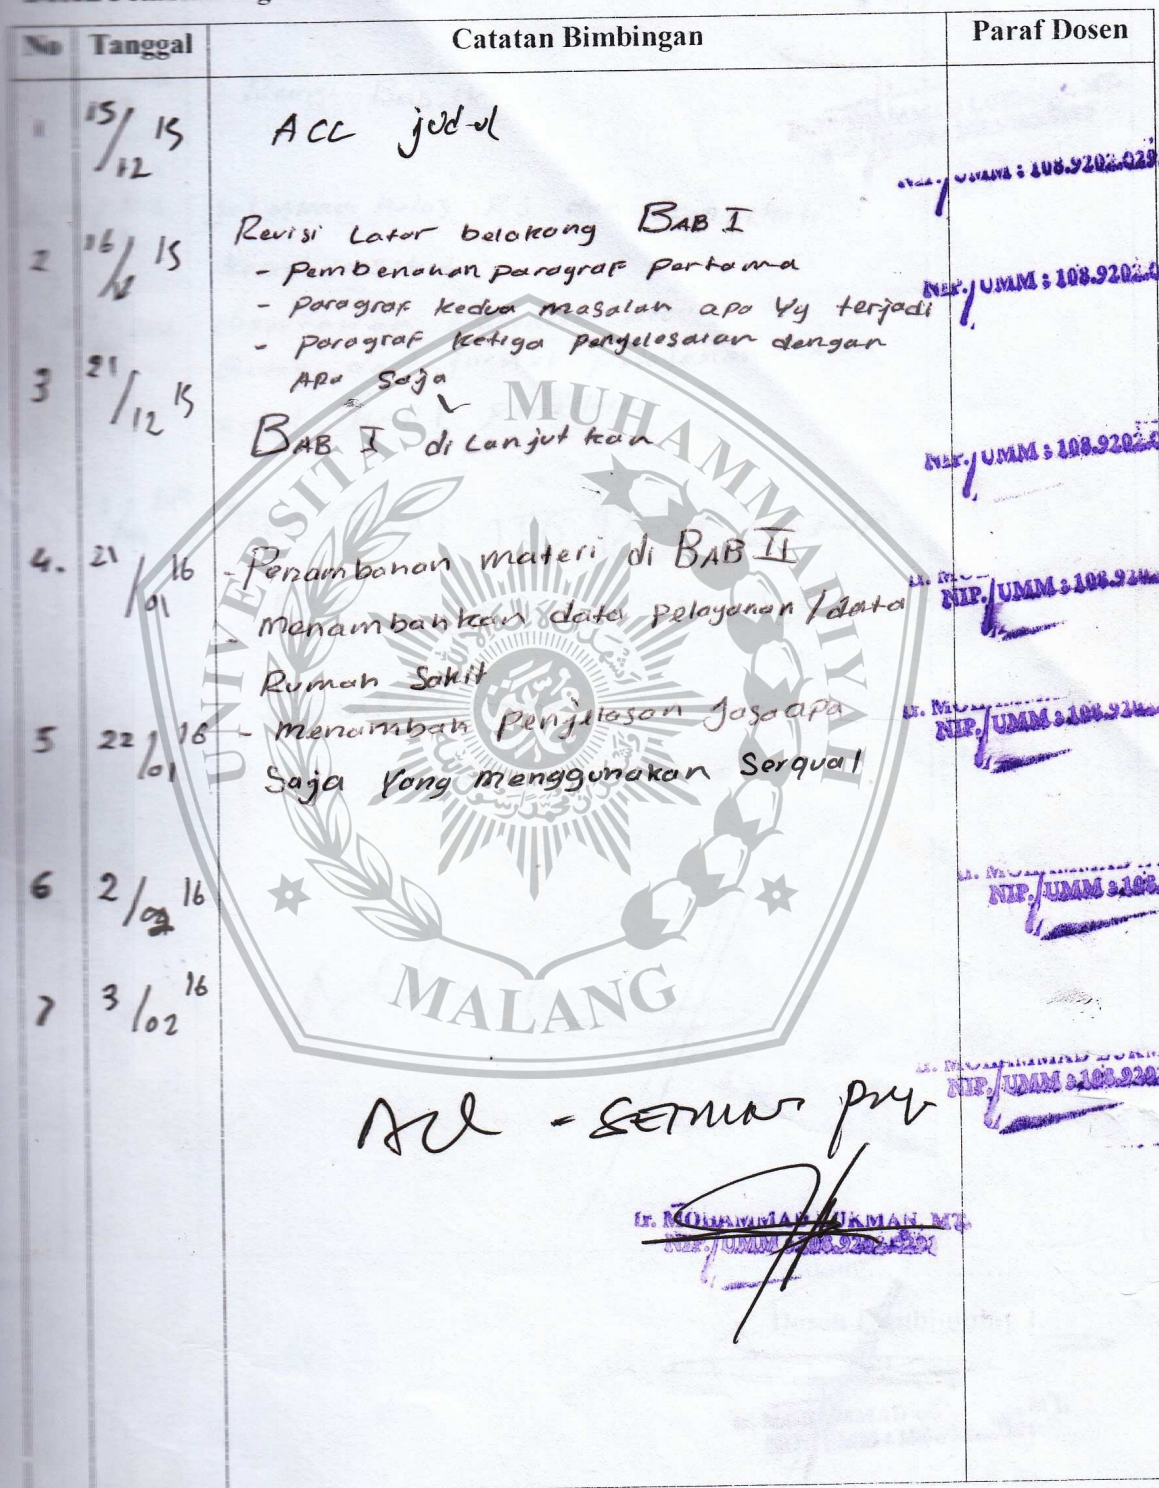 No Tanggal Catatan Bimbingan Paraf Dosen
1 15/12 15 ACC judul
NIP./UMM : 108.9202.029
2 16/12 15 Revisi Latar belakang BAB I
- pembenahan paragraf pertama
NIP./UMM : 108.9202.0
- paragraf kedua masalah apa Yg terjadi
- paragraf ketiga penyelesaian dengan
apa Saja
3 21/12 15
BAB I di Lanjutkan
NIP./UMM : 108.9202.0
4. 21/01 16 - Penambahan materi di BAB II
NIP./UMM : 108.920
- Menambahkan data pelayanan / data
Rumah Sakit
5 22/01 16 - menambah penjelasan Jasa apa
NIP./UMM : 108.920
Saja Yang menggunakan Serqual
6 2/02 16
NIP./UMM : 108.
7 3/02 16
Ir. MOHAMMAD LUKM
NIP./UMM : 108.920
Ir. MOHAMMAD LUKMAN, MT.
NIP./UMM : 108.9202.029
UNIVERSITAS MUHAMMADIYAH
MALANG